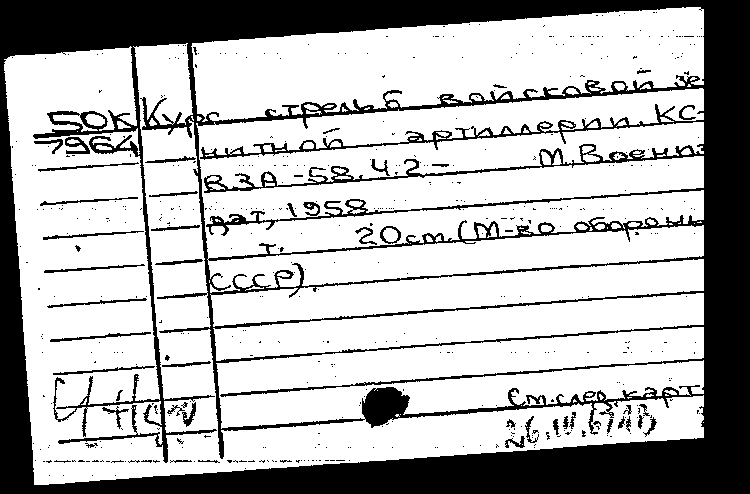 50К Курс стрельб войсковой зе-
7964 нитной артиллерии. КС-
ВЗА-58. Ч.2- М. Воениз
дат, 1958
т. 20см. (М-во обороны
СССР).
См. след. карт
26.IV.67